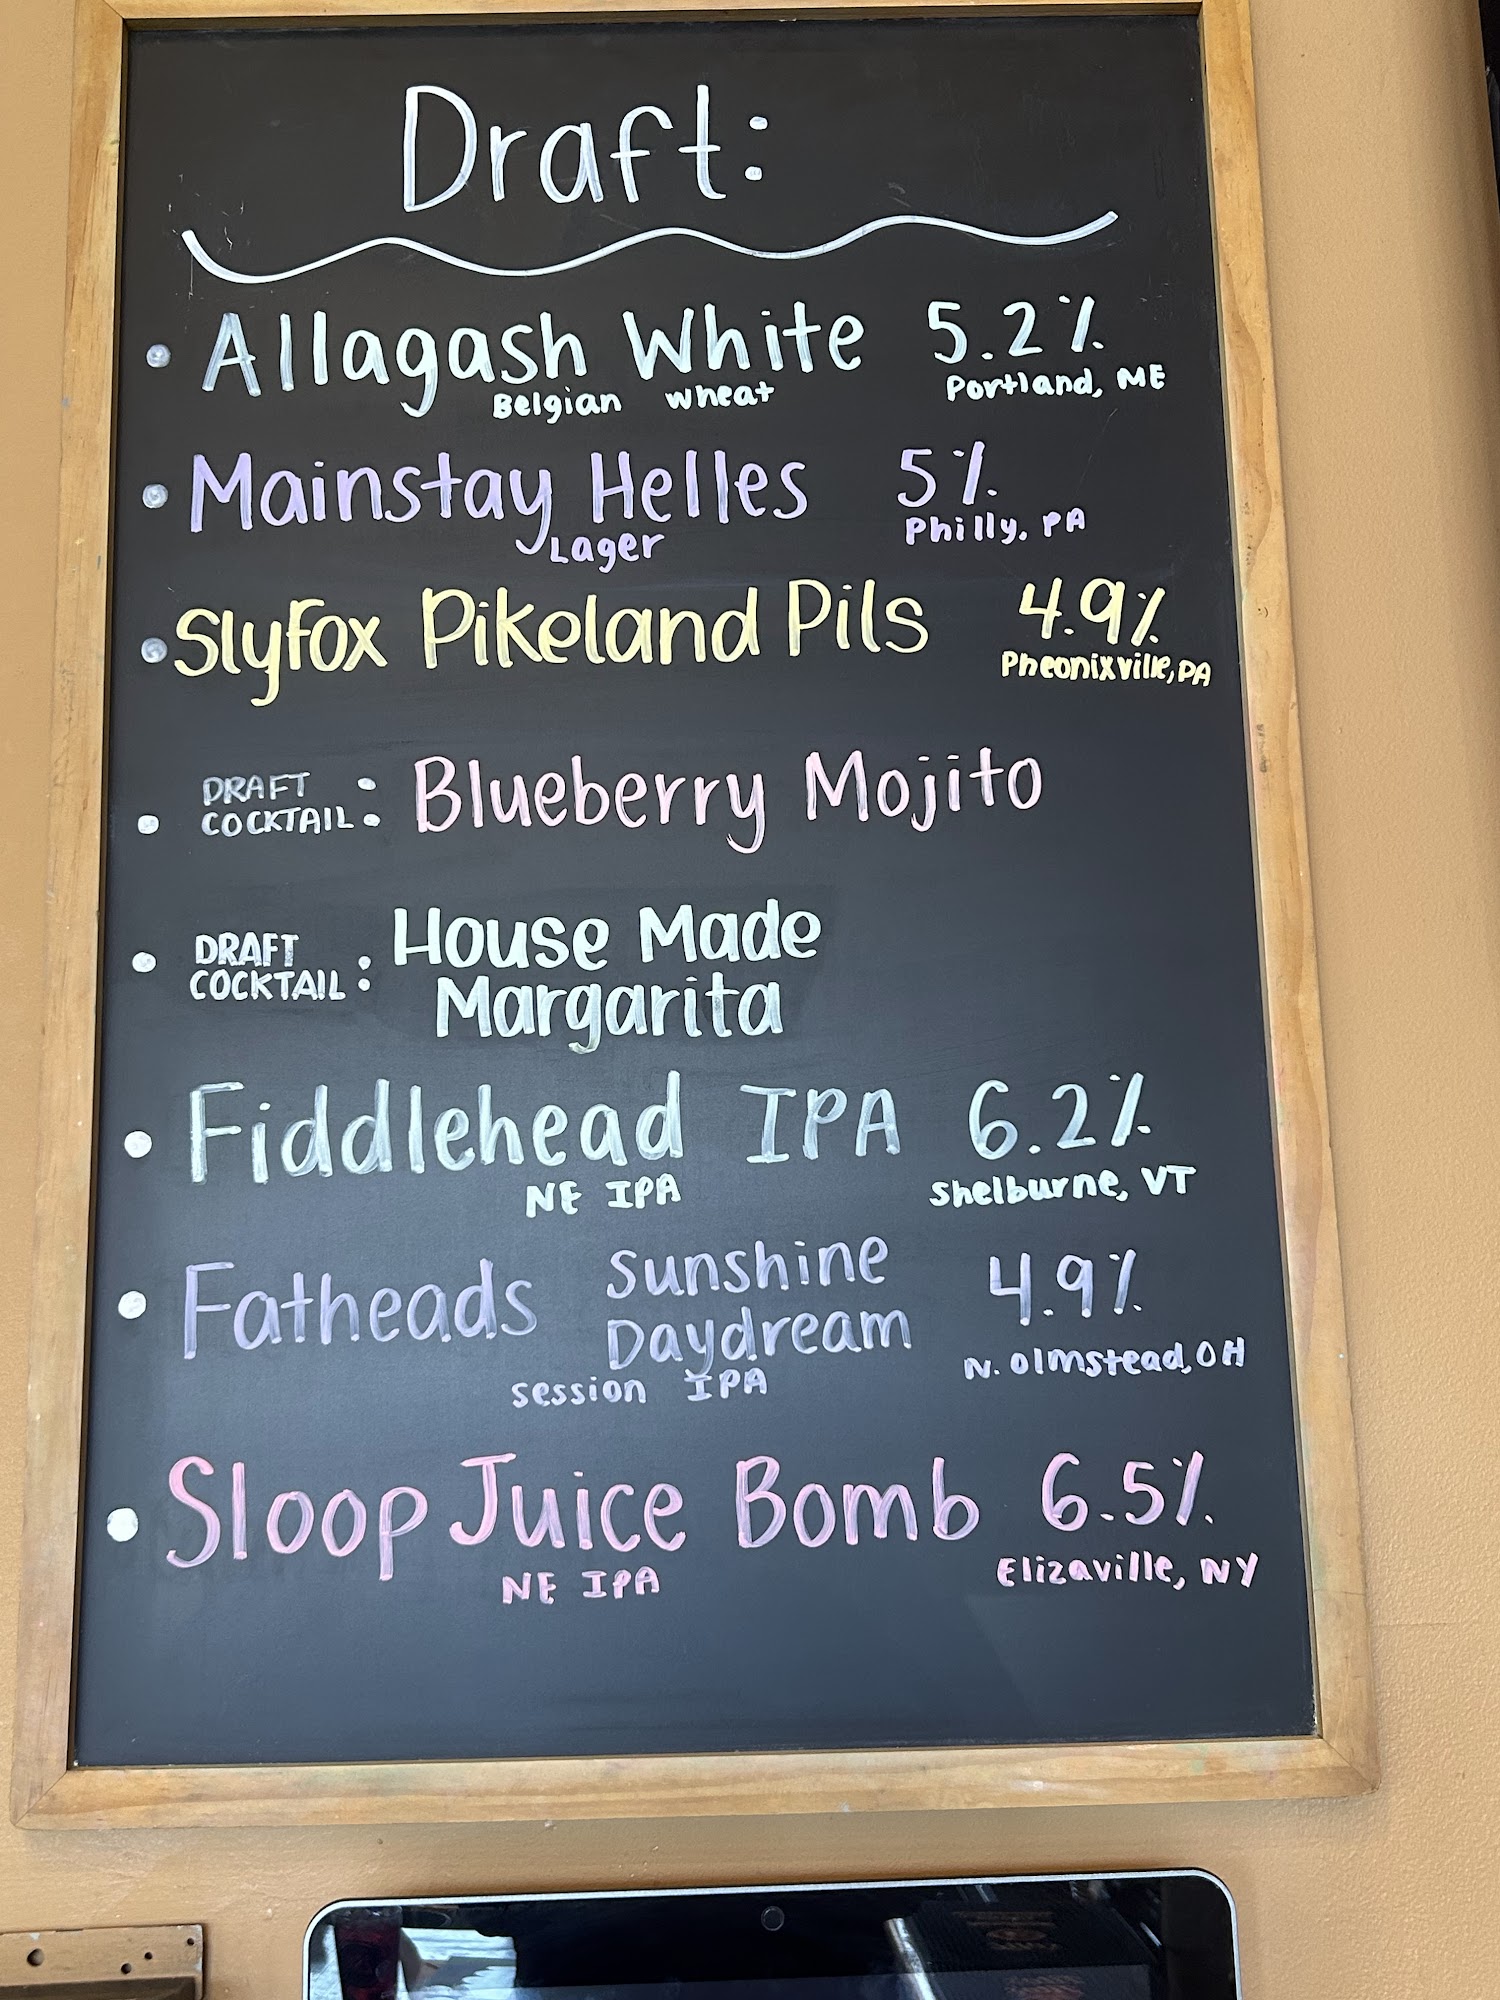 Draft:
• Allagash White 5.2%
Belgian wheat Portland, ME
• Mainstay Helles 5%
Lager Philly, PA
• Slyfox Pikeland Pils 4.9%
Pheonixville, PA
• DRAFT COCKTAIL: Blueberry Mojito
• DRAFT COCKTAIL: House Made
Margarita
• Fiddlehead IPA 6.2%
NE IPA Shelburne, VT
• Fatheads Sunshine Daydream 4.9%
session IPA N. Olmstead, OH
• Sloop Juice Bomb 6.5%
NE IPA Elizaville, NY